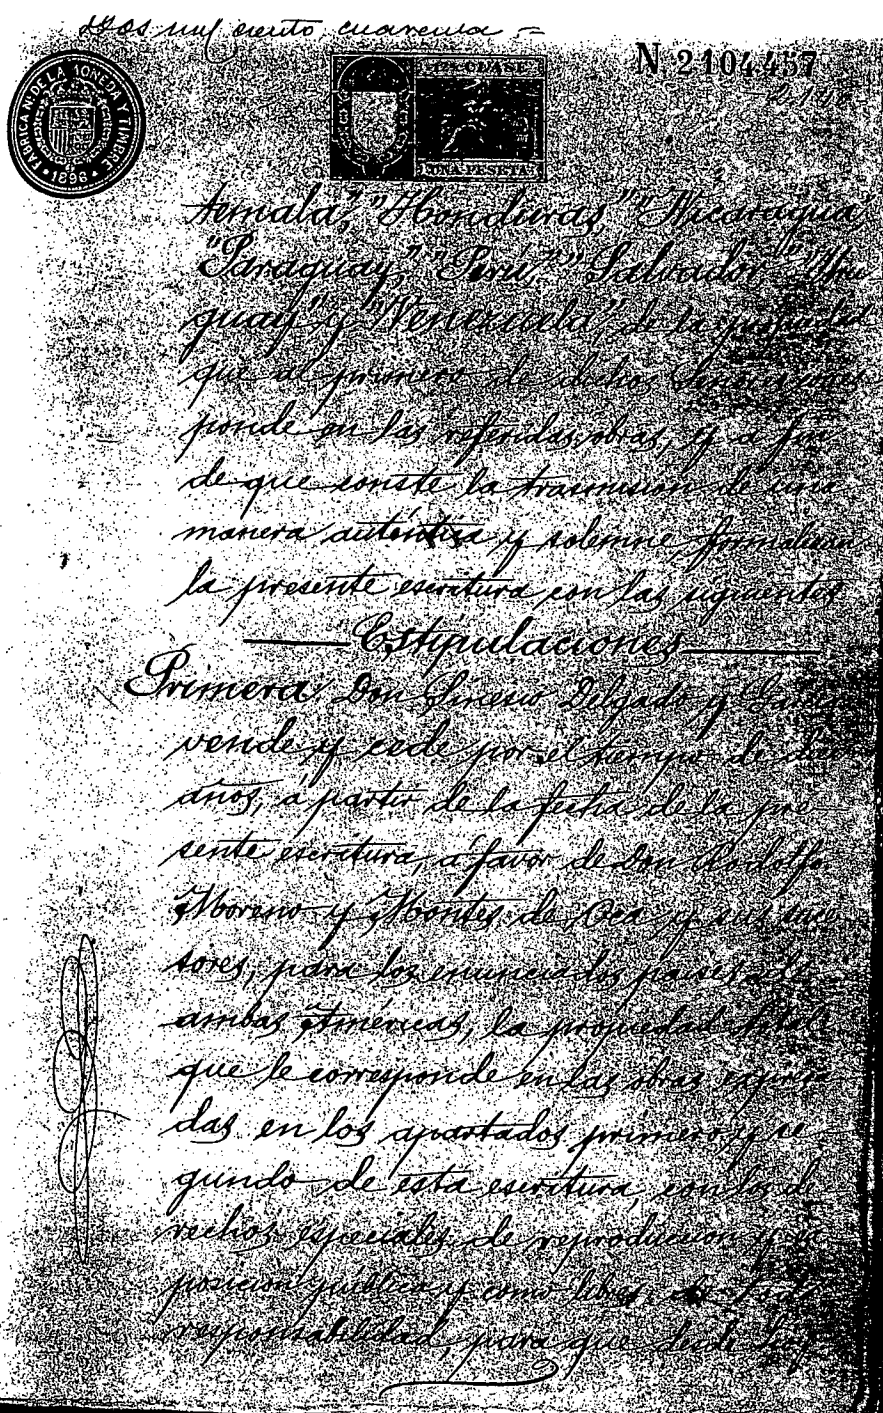 Dos mil ciento cuarenta =
N. 2.104.457
FABRICA N. DE LA MONEDA Y TIMBRE
1896
12ª CLASE
UNA PESETA
temala," "Honduras" "Nicaragua,"
"Paraguay," "Perú," "Salvador" "Uru
guay" y "Venezuela," de la propiedad
que al primero de dichos Señores corres
ponde en las referidas obras, y a fin
de que conste la trasmisión de una
manera auténtica y solemne, formalizan
la presente escritura con las siguientes
Estipulaciones
Primera Don Sinesio Delgado y García
vende y cede por el tiempo de
años, á partir de la fecha de la pre-
sente escritura, á favor de Don Rodolfo
Moreno y Montes de Oca y sus suce
sores, para los enunciados paises de
ambas Américas, la propiedad
que le corresponde en las obras expresa
das en los apartados primero y se-
gundo de esta escritura, con los de
rechos especiales de reproducción y
posición pública y como libres de toda
responsabilidad, para que desde hoy